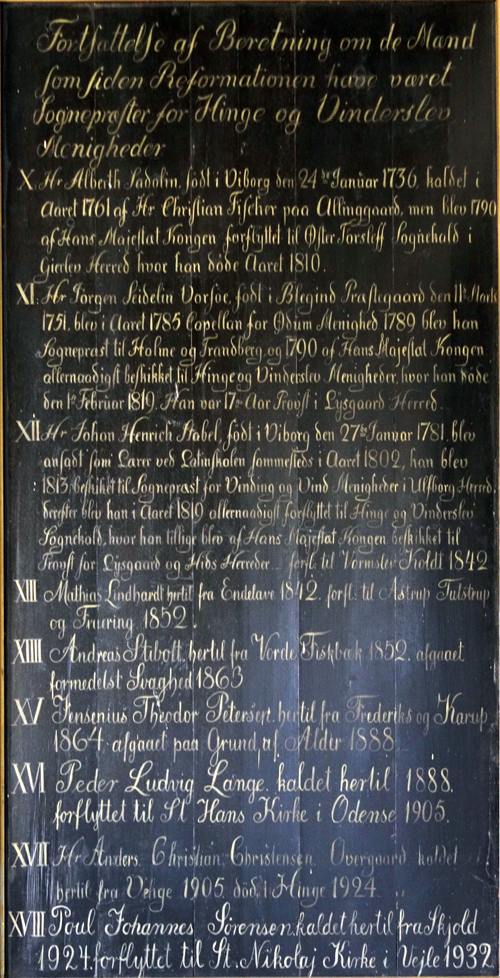 Fortsattelse af Beretning om de Mænd
som siden Reformationen have været
Sognepræster for Hinge og Vinderslev
Menigheder
X. Hr Alberth Sadolin, født i Viborg den 24de Januar 1736, kaldet i
Aaret 1761 af Hr Christian Fischer paa Allinggaard, men blev 1790
af Hans Majestæt Kongen forflyttet til Øster Torsleff Sognekald i
Gierlev Herred hvor han døde Aaret 1810.
XI. Hr Jørgen Seidelin Vorsøe, født i Blegind Præstegaard den 11te Marts
1751. blev i Aaret 1785 Capellan for Ødum Menighed 1789 blev han
Sognepræst til Halme og Trandberg, og 1790 af Hans Majestæt Kongen
allernaadigst beskikket til Hinge og Vinderslev Menigheder, hvor han døde
den 1ste Februar 1819. Han var 17 Aar Provst i Lysgaard Herred.
XII Hr Johan Henrich Stabel, født i Viborg den 27de Januar 1781. blev
ansadt som Lærer ved Latinskolen sammesteds i Aaret 1802, han blev
1813 beskiket til Sognepræst for Vinding og Vind Menigheder i Ulfborg Herred,
derefter blev han i Aaret 1819 allernaadigst forflyttet til Hinge og Vinderslev
Sognekald, hvor han tillige blev af Hans Majestæt Kongen beskikket til
Provst for Lysgaard og Hids Herreder. forfl. til Vormslev Koldt 1842
XIII Mathias Lindhardt hertil fra Endelave 1842. forfl. til Astrup Tulstrup
og Fruering 1852.
XIIII Andreas Stibolt, hertil fra Vorde Fiskbæk 1852. afgaaet
formedelst Svaghed 1863
XV Jensenius Theodor Petersen. hertil fra Frederiks og Karup
1864. afgaaet paa Grund af Alder 1888.
XVI Peder Ludvig Lange. kaldet hertil 1888.
forflyttet til St Hans Kirke i Odense 1905.
XVII Hr Anders Christian Christensen Overgaard kaldet
hertil fra Venge 1905. død i Hinge 1924.
XVIII Poul Johannes Sørensen. kaldet hertil fra Skjold
1924. forflyttet til St. Nikolaj Kirke i Vejle 1932